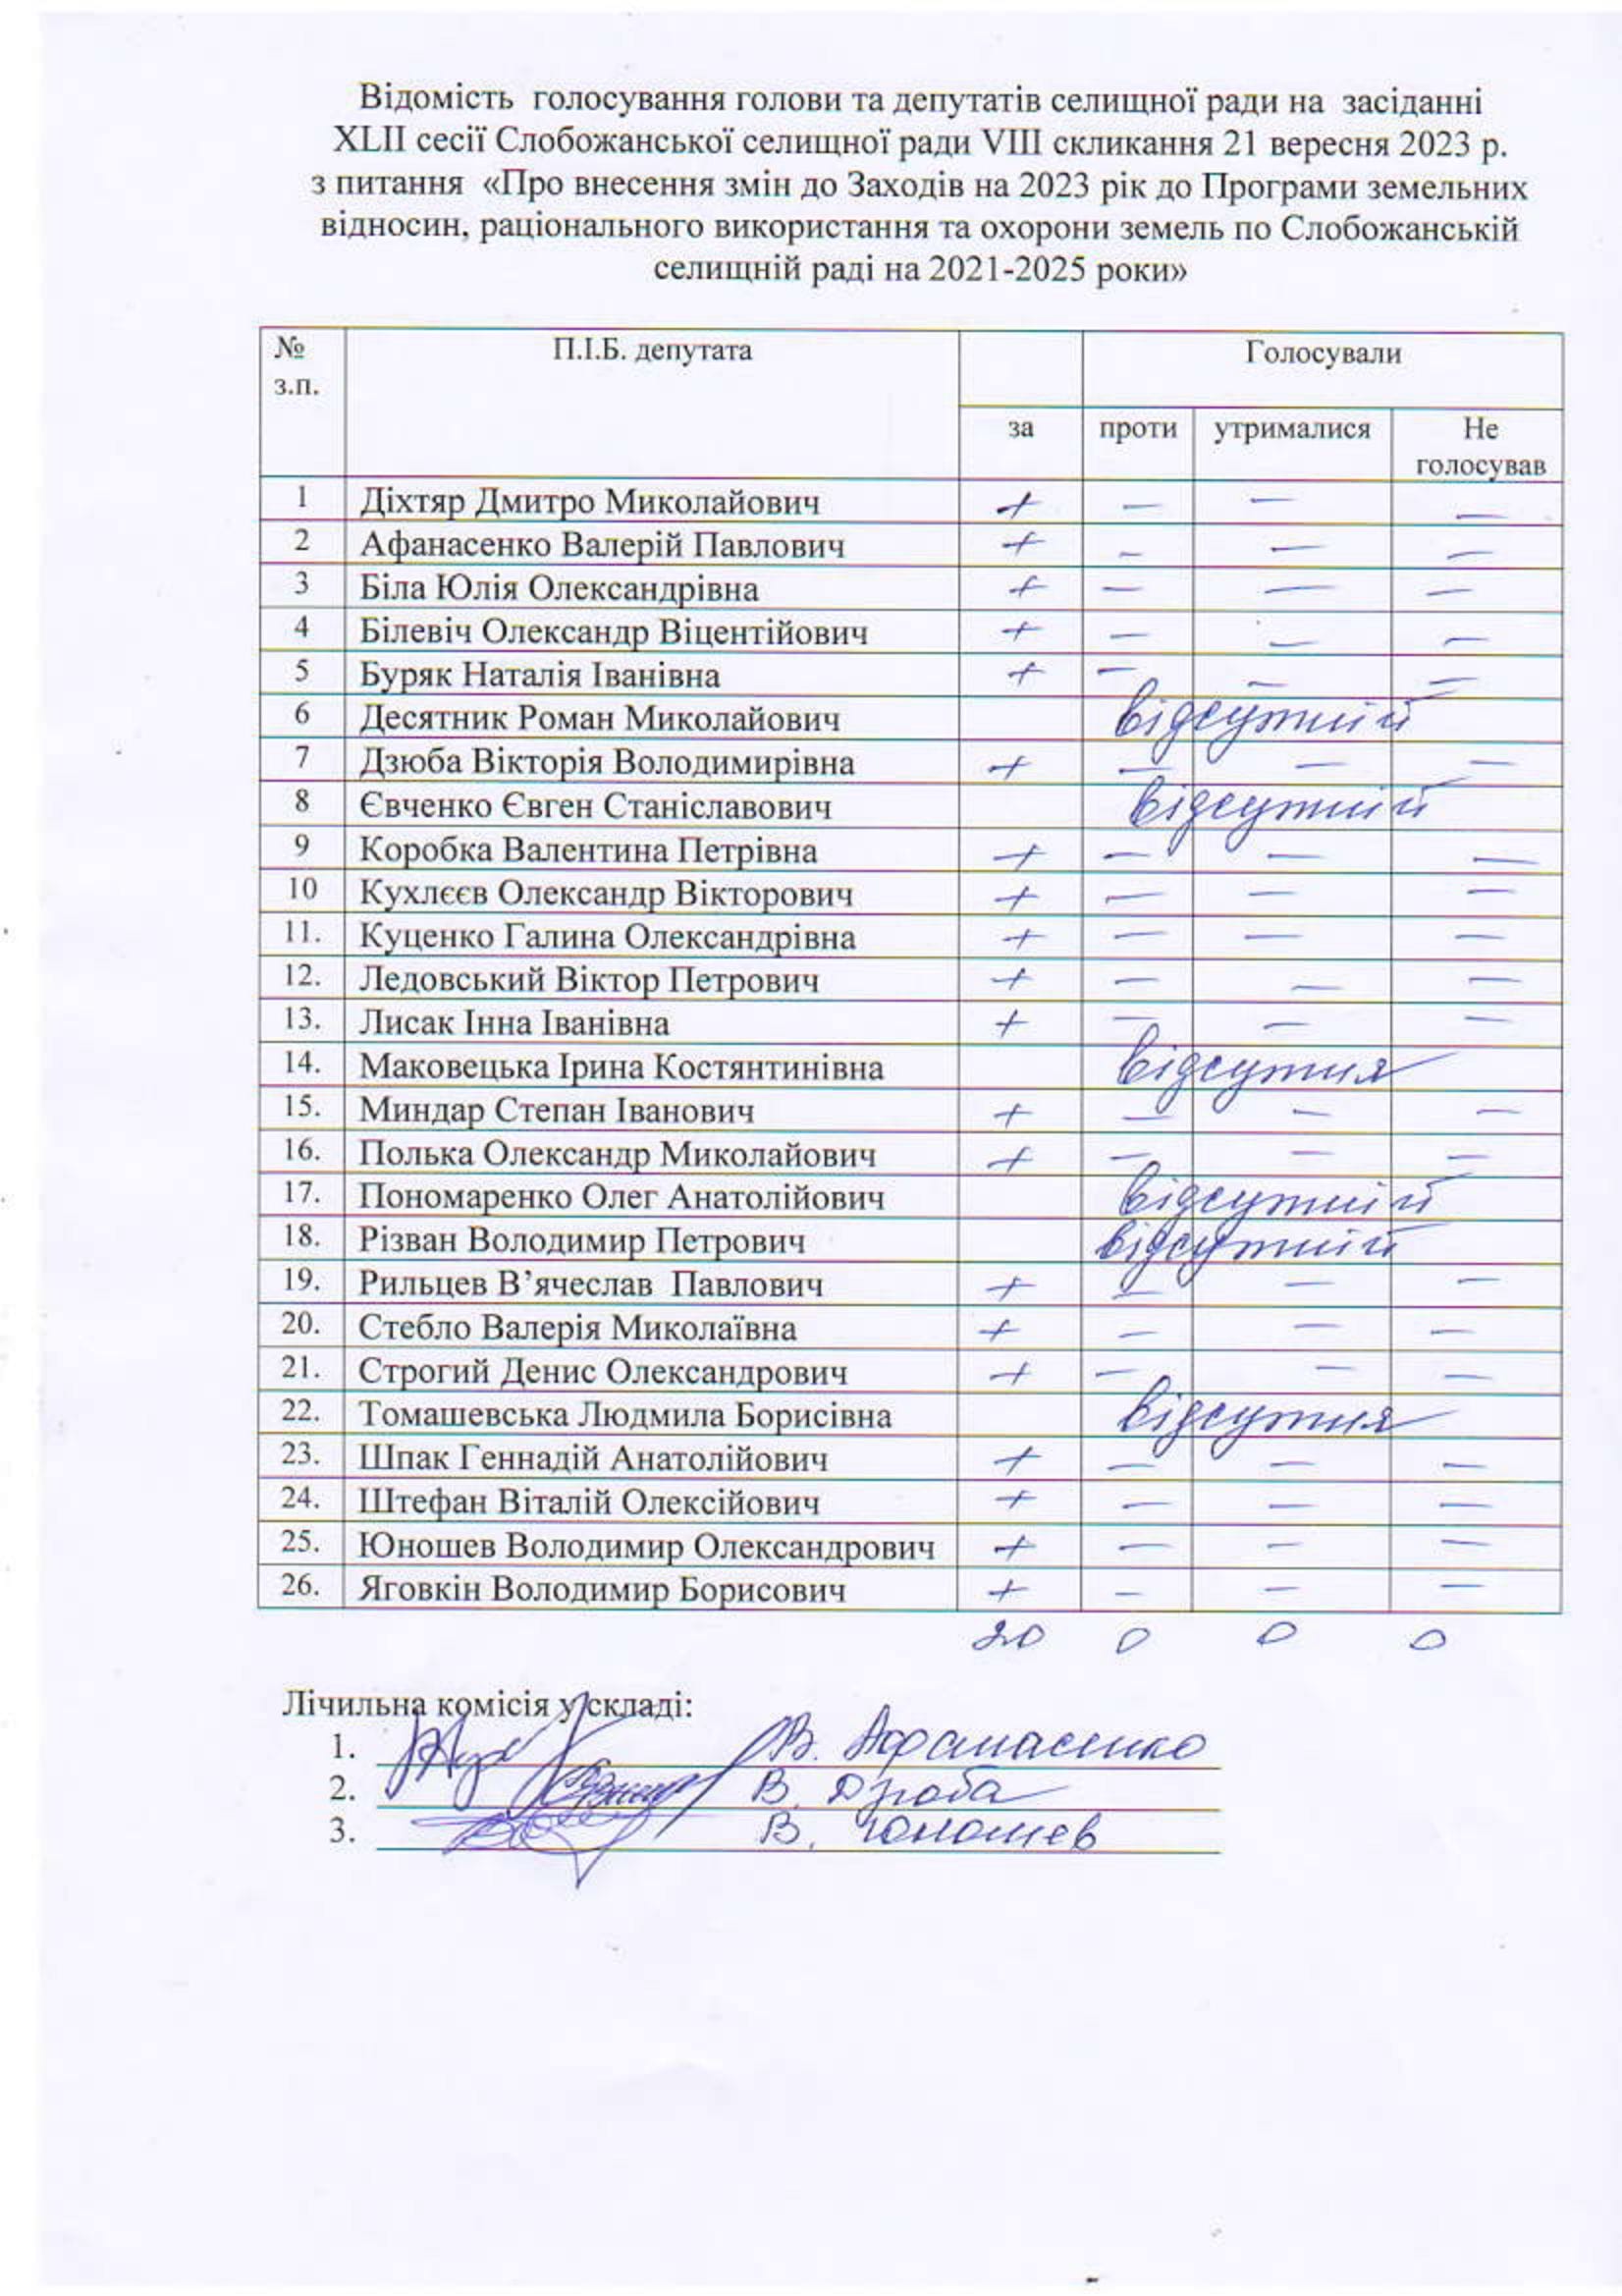 Відомість голосування голови та депутатів селищної ради на засіданні
XLII сесії Слобожанської селищної ради VIII скликання 21 вересня 2023 р.
з питання «Про внесення змін до Заходів на 2023 рік до Програми земельних
відносин, раціонального використання та охорони земель по Слобожанській
селищній раді на 2021-2025 роки»
№ з.п. П.І.Б. депутата Голосували
за проти утрималися Не голосував
1 Діхтяр Дмитро Миколайович + — — —
2 Афанасенко Валерій Павлович + — — —
3 Біла Юлія Олександрівна + — — —
4 Білевіч Олександр Віцентійович + — — —
5 Буряк Наталія Іванівна + — — —
6 Десятник Роман Миколайович відсутній
7 Дзюба Вікторія Володимирівна + — — —
8 Євченко Євген Станіславович відсутній
9 Коробка Валентина Петрівна + — — —
10 Кухлєєв Олександр Вікторович + — — —
11. Куценко Галина Олександрівна + — — —
12. Ледовський Віктор Петрович + — — —
13. Лисак Інна Іванівна + — — —
14. Маковецька Ірина Костянтинівна відсутня
15. Миндар Степан Іванович + — — —
16. Полька Олександр Миколайович + — — —
17. Пономаренко Олег Анатолійович відсутній
18. Різван Володимир Петрович відсутній
19. Рильцев В’ячеслав Павлович + — — —
20. Стебло Валерія Миколаївна + — — —
21. Строгий Денис Олександрович + — — —
22. Томашевська Людмила Борисівна відсутня
23. Шпак Геннадій Анатолійович + — — —
24. Штефан Віталій Олексійович + — — —
25. Юношев Володимир Олександрович + — — —
26. Яговкін Володимир Борисович + — — —
20 0 0 0
Лічильна комісія у складі:
1. В. Афанасенко
2. В. Дзюба
3. В. Юношев